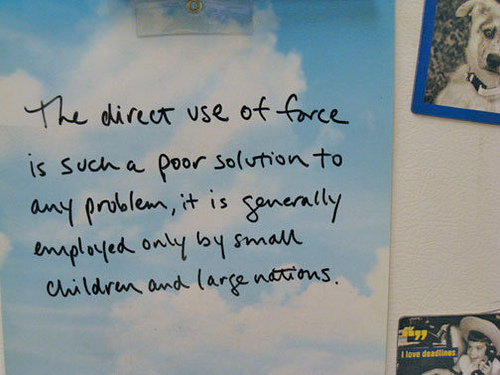 The direct use of force
is such a poor solution to
any problem, it is generally
employed only by small
children and large nations.
I love deadlines